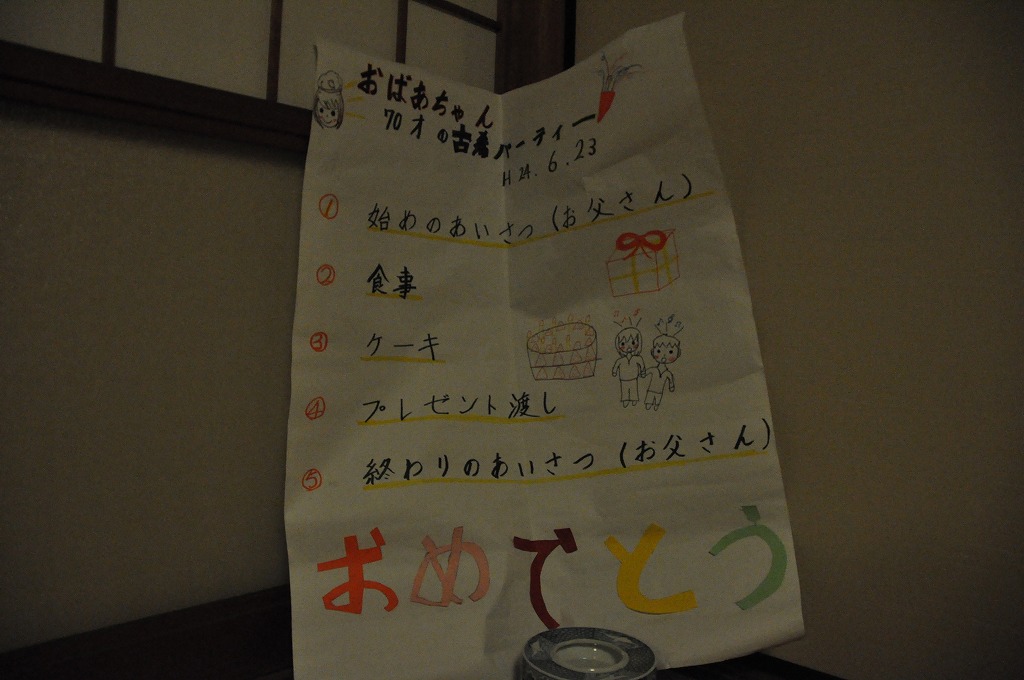 おばあちゃん
70才の古希パーティー
H24.6.23
① 始めのあいさつ(お父さん)
② 食事
③ ケーキ
④ プレゼント渡し
⑤ 終わりのあいさつ(お父さん)
おめでとう